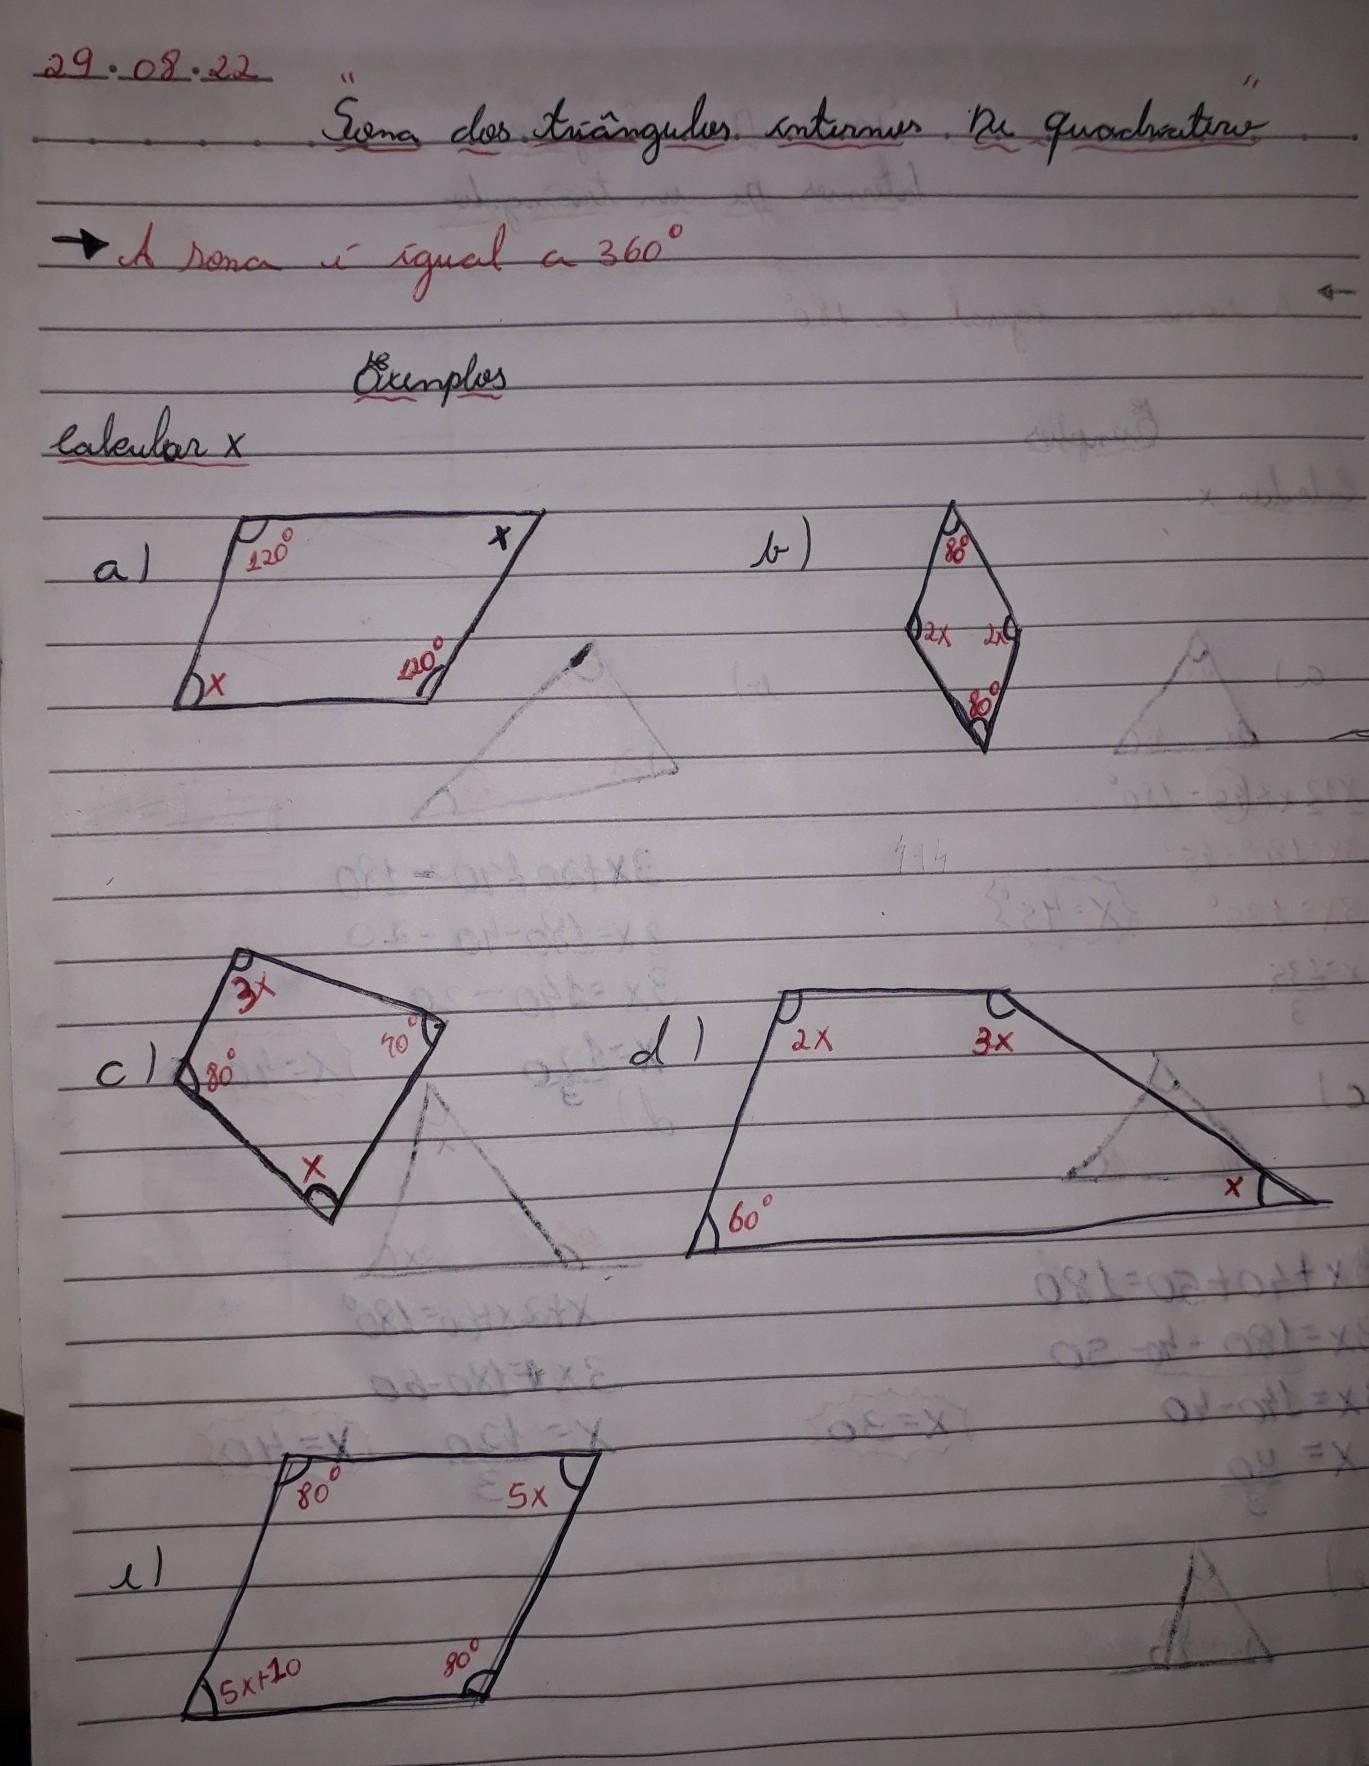 29.08.22
"Soma dos triângulos internos De quadratero"
→ A soma é igual a 360°
Exemplos
Calcular x
a) 120° x
x 120°
b) 80°
2x 2x
80°
c) 3x
70°
80°
x
d) 2x 3x
60° x
e) 80° 5x
5x+10 80°